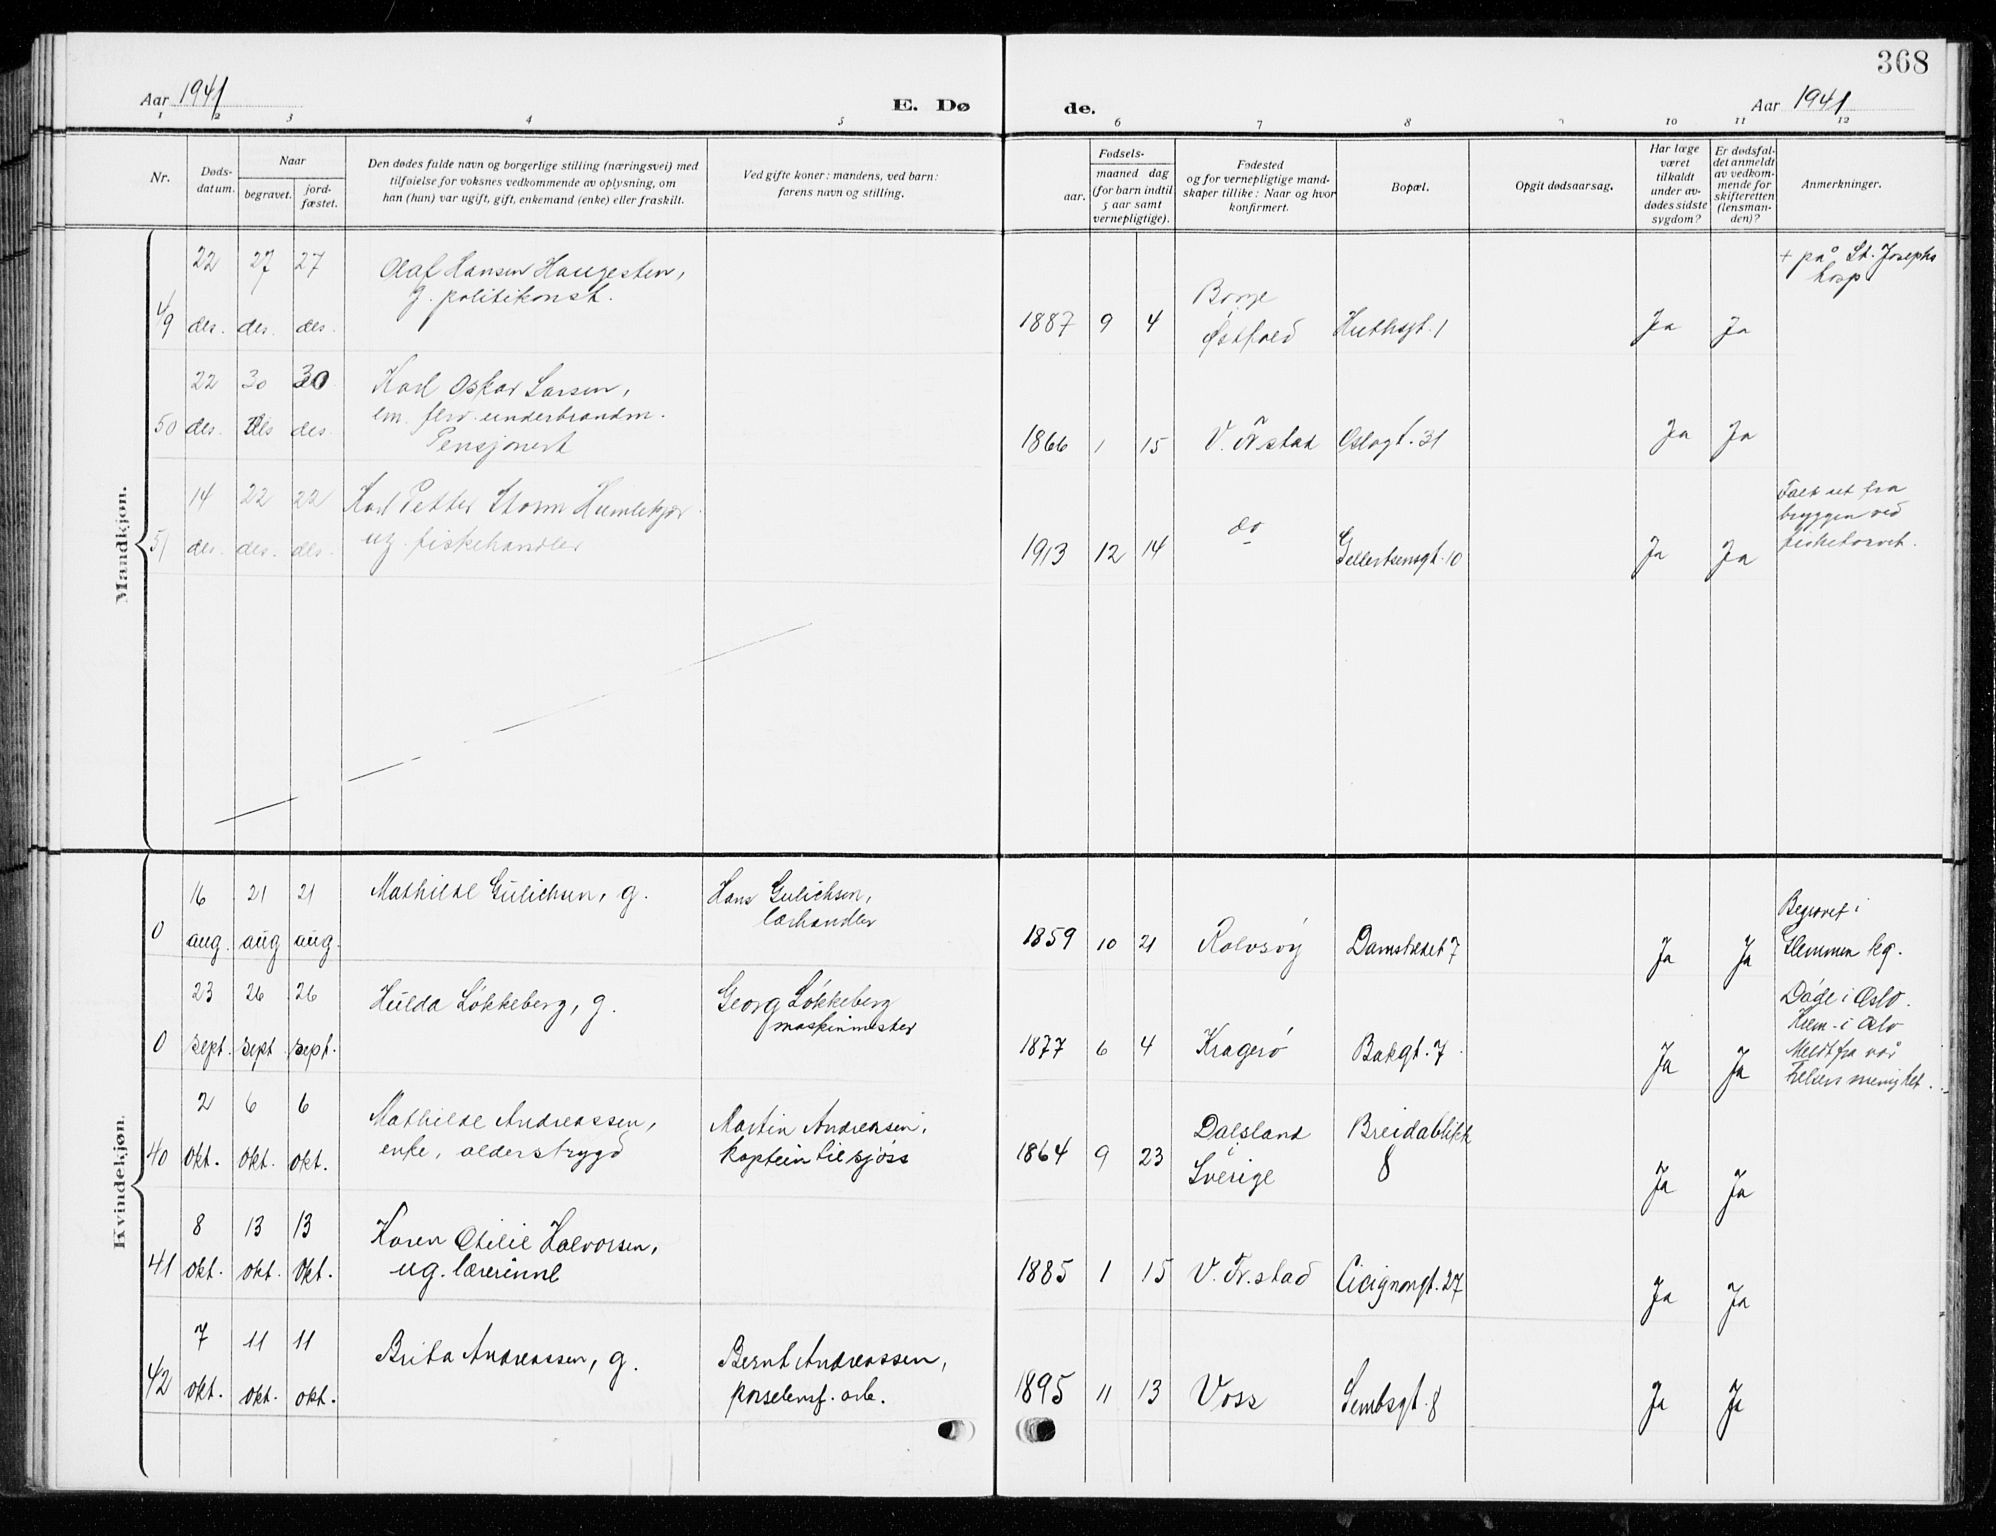 368
Aar 1941
E. Dø
de.
Aar 1941
1 2 3 4 5 6 7 8 9 10 11 12
Nr.
Døds-
datum.
Naar
begravet.
jord-
fæstet.
Den dødes fulde navn og borgerlige stilling (næringsvei) med
tilføielse for voksnes vedkommende av oplysning, om
han (hun) var ugift, gift, enkemand (enke) eller fraskilt.
Ved gifte koner: mandens, ved barn:
farens navn og stilling.
Fødsels-
aar.
maaned dag
(for barn indtil
5 aar samt
vernepligtige).
Fødested
og for vernepligtige mand-
skaper tillike: Naar og hvor
konfirmert.
Bopæl.
Opgit dødsaarsag.
Har læge
været
tilkaldt
under av-
dødes sidste
sygdom?
Er dødsfal-
det anmeldt
av vedkom-
mende for
skifteretten
(lensman-
den)?
Anmerkninger.
Mandkjøn.
22 27 27 Olaf Hansen Haugesten, + på St. Josephs
g. politikonst. hosp
49 des. des. des. 1887 9 4 Borge Østfold Huthsgt. 1 Ja Ja
22 30 30 Karl Oskar Larsen,
em. fhv. underbrandm.
50 des. des des. Pensjonert 1866 1 15 V. Fr.stad Oslogt. 31 Ja Ja
14 22 22 Karl Petter Storm Humlekjær Falt ut fra
ug. fiskehandler bryggen ved
51 des. des. des. 1913 12 14 do Gellertsensgt. 10 Ja Ja fisketorvet.
Kvindekjøn.
16 21 21 Mathilde Gulichsen, g. Hans Gulichsen, Begravet i
lærhandler
0 aug. aug aug. 1859 10 21 Rolvsøy Damstredet 7 Ja Ja Glemmen kg.
23 26 26 Hulda Løkkeberg, g. Georg Løkkeberg Døde i Oslo.
maskinmester Krem. i Oslo
0 sept. sept. sept. 1877 6 4 Kragerø Bakgt. 7 Ja Ja Meldt fra vår
Frelsers menighet.
2 6 6 Mathilde Andreassen, Martin Andreasen, Dalsland Breidablikk
40 okt. okt. okt. enke, alderstrygd kaptein til sjøss 1864 9 23 Sverige 8 Ja Ja
8 13 13 Karen Otilie Halvorsen,
41 okt. okt. okt. ug. lærerinne 1885 1 15 V. Fr.stad Cicignongt. 27 Ja Ja
7 11 11 Brita Andreassen, g. Bernt Andreassen,
42 okt. okt. okt. porselensf. arb. 1895 11 13 Voss Sembsgt. 8 Ja Ja